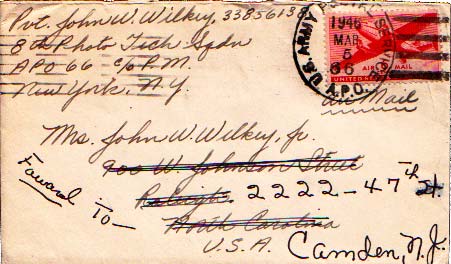 Pvt. John W. Wilkey, 33856138
8th Photo Tech Sqdn
APO 66 c/o P.M.
New York, N.Y.
U.S. ARMY
1946
MAR
5
66
A.P.O.
AIR MAIL
UNITED STATES
Air Mail
Mrs. John W. Wilkey, Jr.
900 W. Johnson Street
Raleigh
North Carolina
U.S.A.
Foward To—
2222-47th St.
Camden, N.J.